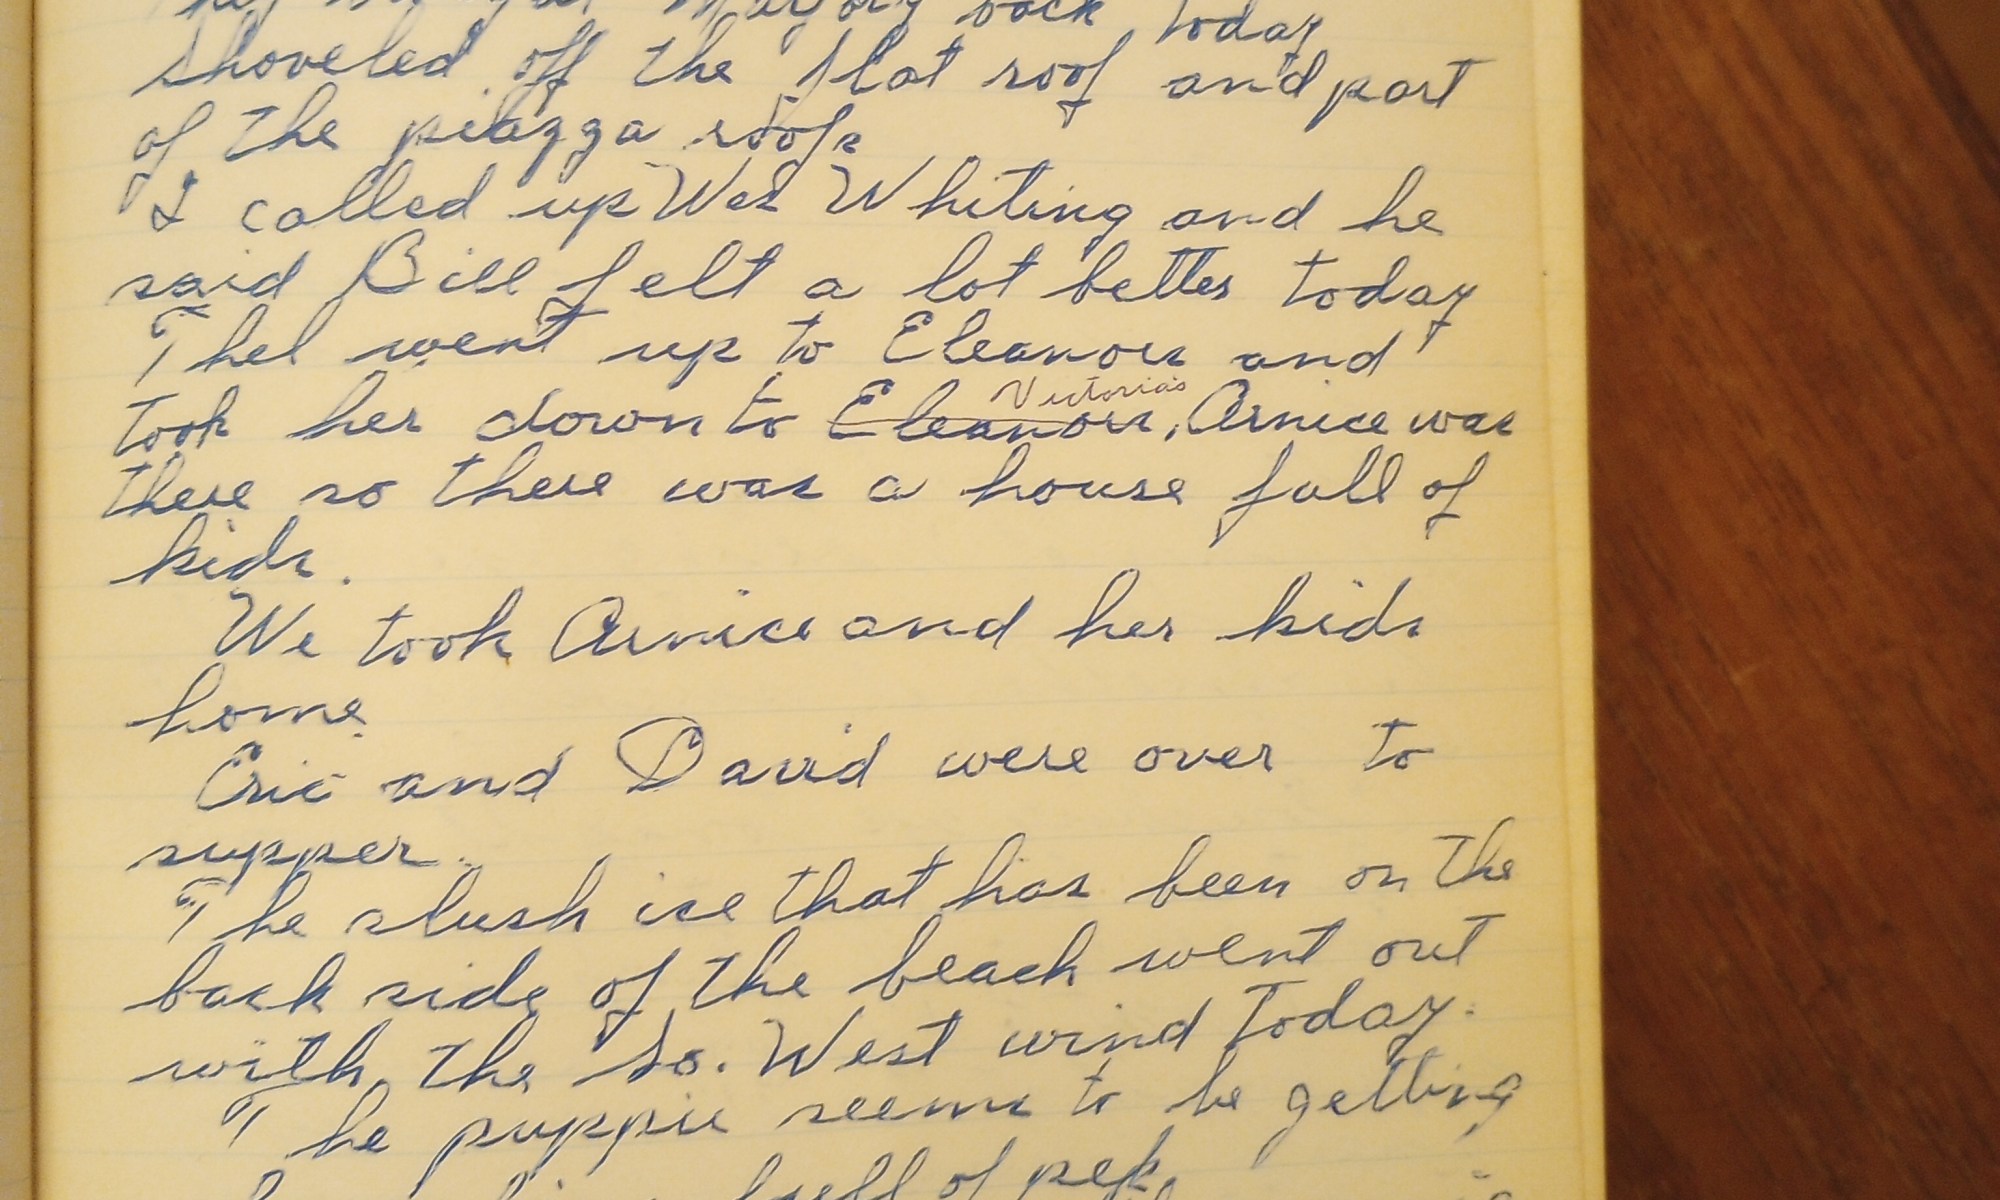 Marjory back today
shoveled off the flat roof and part
of the piazza roof.
I called up Wes Whiting and he
said Bill felt a lot better today
Thel went up to Eleanors and
took her down to Eleanors, Victorias Arnice was
there so there was a house full of
kids.
We took Arnice and her kids
home.
Eric and David were over to
supper.
The slush ice that has been on the
back side of the beach went out
with the So. West wind today.
The puppie seems to be getting
full of pep